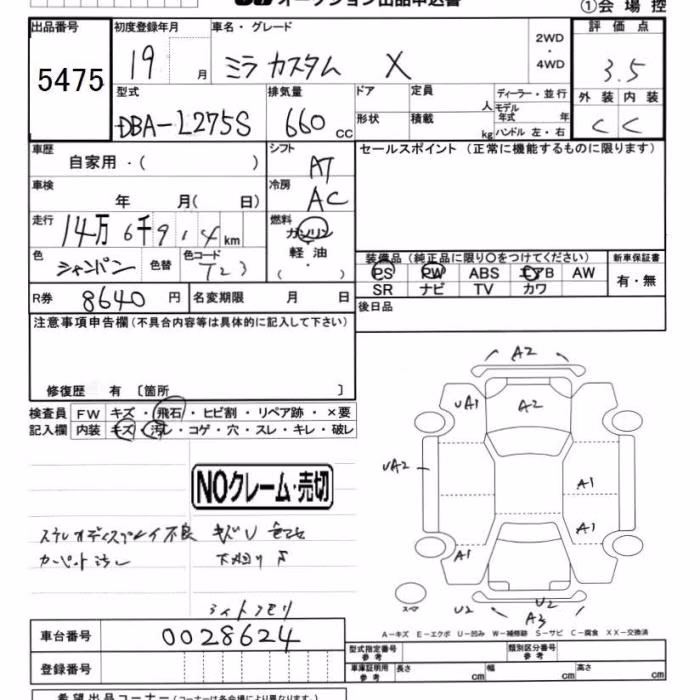 オークション出品申込書
①会場控
出品番号
5475
初度登録年月
19 月
車名・グレード
ミラ カスタム X
2WD
・
4WD
評価点
3.5
型式
DBA-L275S
排気量
660 cc
ドア
定員
人
形状
積載
kg
ディーラー・並行
モデル年式 年
ハンドル 左・右
外装 内装
C C
車歴
自家用・( )
シフト
AT
セールスポイント (正常に機能するものに限ります)
車検
年 月( 日)
冷房
AC
走行
14万 6千 9 1 4 km
燃料
ガソリン
軽油
( ・ )
色
シャンパン
色替
色コード
T23
装備品 (純正品に限り○をつけてください)
新車保証書
PS PW ABS エアB AW
SR ナビ TV カワ
有・無
R券
8640 円
名変期限 月 日
後日品
注意事項申告欄 (不具合内容等は具体的に記入して下さい)
修復歴 有 〔箇所 〕
検査員記入欄
FW キズ・飛石・ヒビ割・リペア跡・×要
内装 キズ・汚レ・コゲ・穴・スレ・キレ・破レ
NOクレーム・売切
ステレオディスプレイ不良 キズU
カーペット汚レ 下廻りサ
A2
UA1
A2
UA2
A1
A1
A1
スペア
U2
U2
A3
A−キズ E−エクボ U−凹み W−補修跡 S−サビ C−腐食 XX−交換済
車台番号
0028624
登録番号
型式指定番号
参考
類別区分番号
参考
車庫証明用
参考
長さ cm
幅 cm
高さ cm
希望出品コーナー (コーナーは各会場により異なります。)